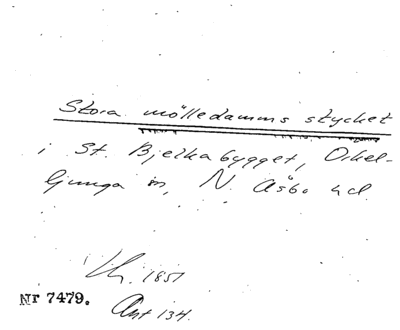 Stora mölledamms stycket
i St. Bjelkabygget, Örkel-
ljunga sn, N. Åsbo hd
Lh. 1851
Nr 7479.
Ant 134.